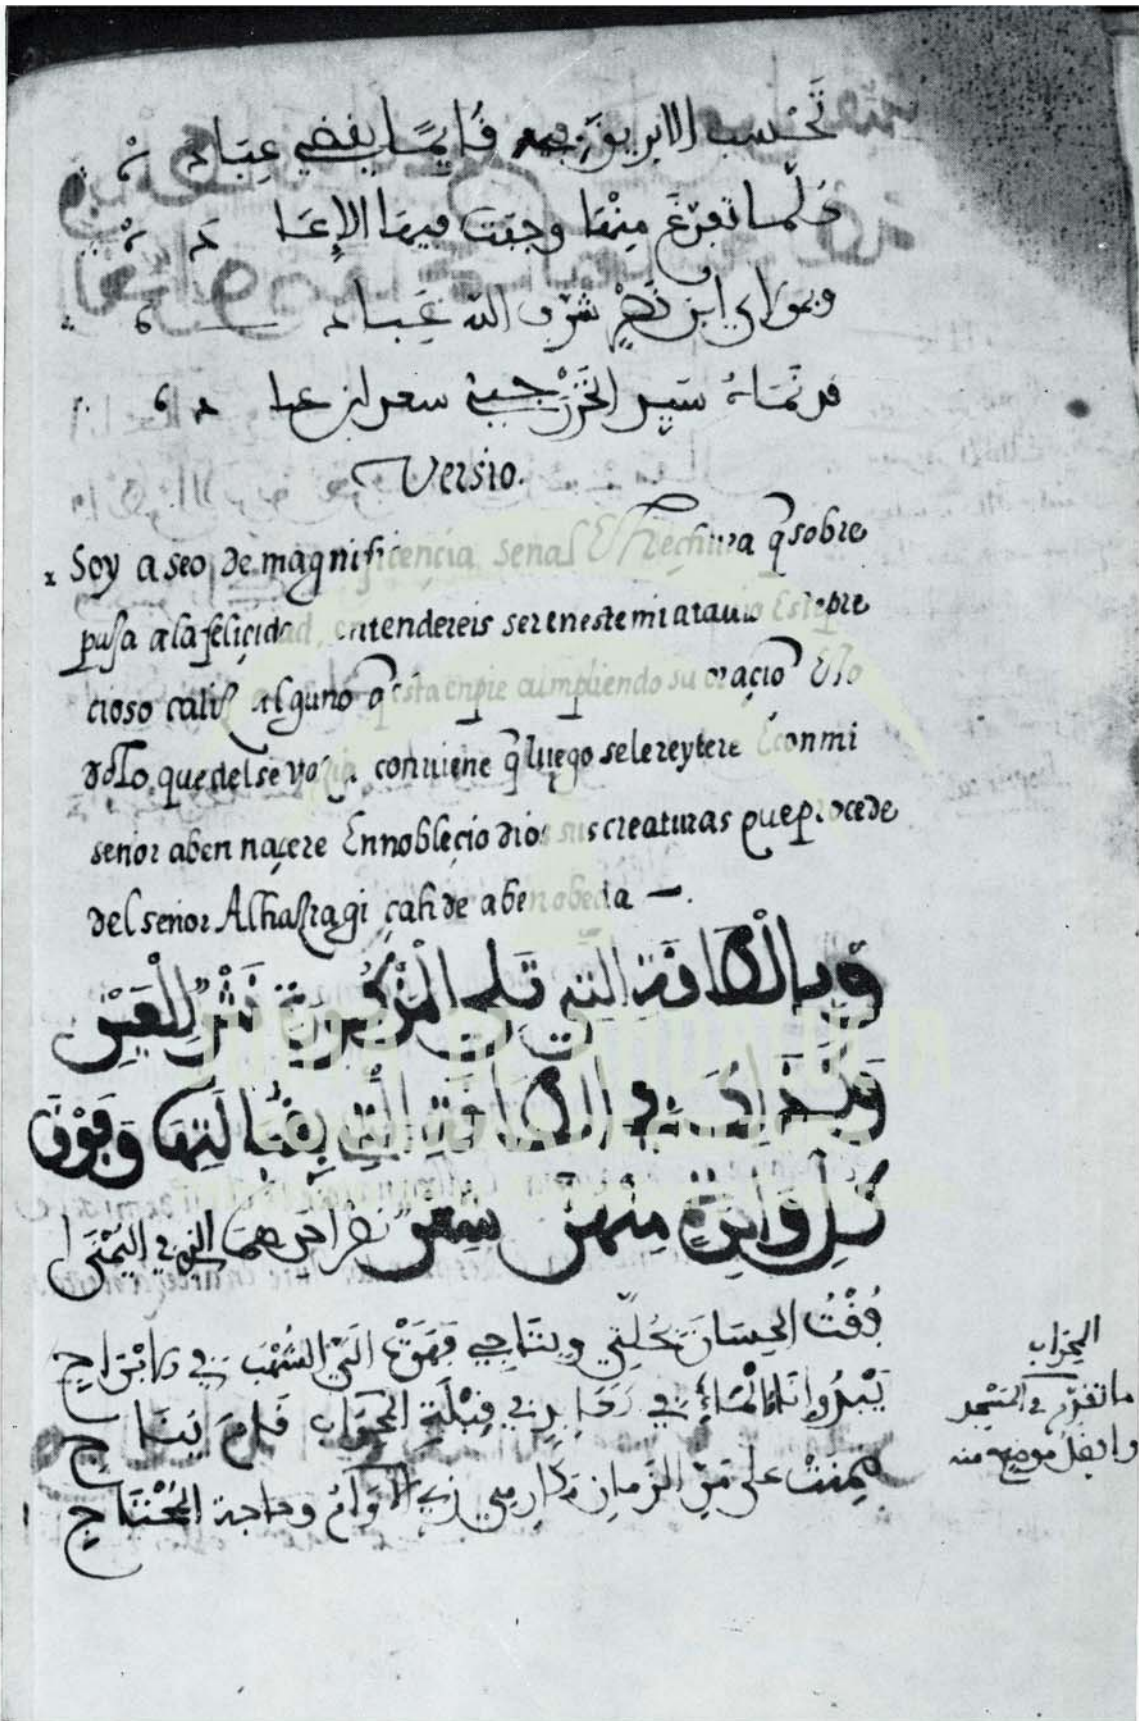 تَحْسب الابريق فيه قَايمًا يقضي عِبَاد
كلّما تفرّغ مِنْهَا وجبت فيها الإِعَا د
وبمولاي ابن نَصْرٍ شرّف الله عِبَاد
قد نَمَاهُ سَيّد الخَزْرَجِيّ سعد ابن عبا د
Versio.
Soy aseo de magnificençia senal Et hechura q̃ sobre
puja ala feliçidad, entendereis ser en este mi atauio Este pre
cioso aliq̃ alguno q̃ esta en pie cumpliendo su oraçiõ Et to
do lo que del se conuiene q̃ luego se le reytere E con mi
senor aben naçere Ennobleçio dios sus creaturas pues procede
del senor Alhazragi çahde aben obeda —.
وفي الطاقة التي تلي المذكورة نَثْرٌ لِلْعَيْن
في الطاقة التي بِقُبَالَتِهَا وَفَوْقَ
كُلِّ وَاحِدَةٍ مِنْهُنّ شِعْرٌ نصّ احدهما التي في اليُمْنَى
فُقْتُ الحِسَانَ بحُلّتِي وبتَاجِي فَهَوَتْ اليّ الشُهْب في الابْرَاجِ
يَبْدُو إنَاءُ الْمَاءِ فيّ كَعَابِدٍ في قِبْلَةِ المِحْرَابِ قَامَ يُنَا جِي
ضَمِنَتْ على مَرّ الزّمانِ مَكارمي رَيّ الأُوَامِ وحاجة المُحْتَاجِ
المِحْرَاب
ما تقدّم في المَسْجِد
وافضل موضع منه